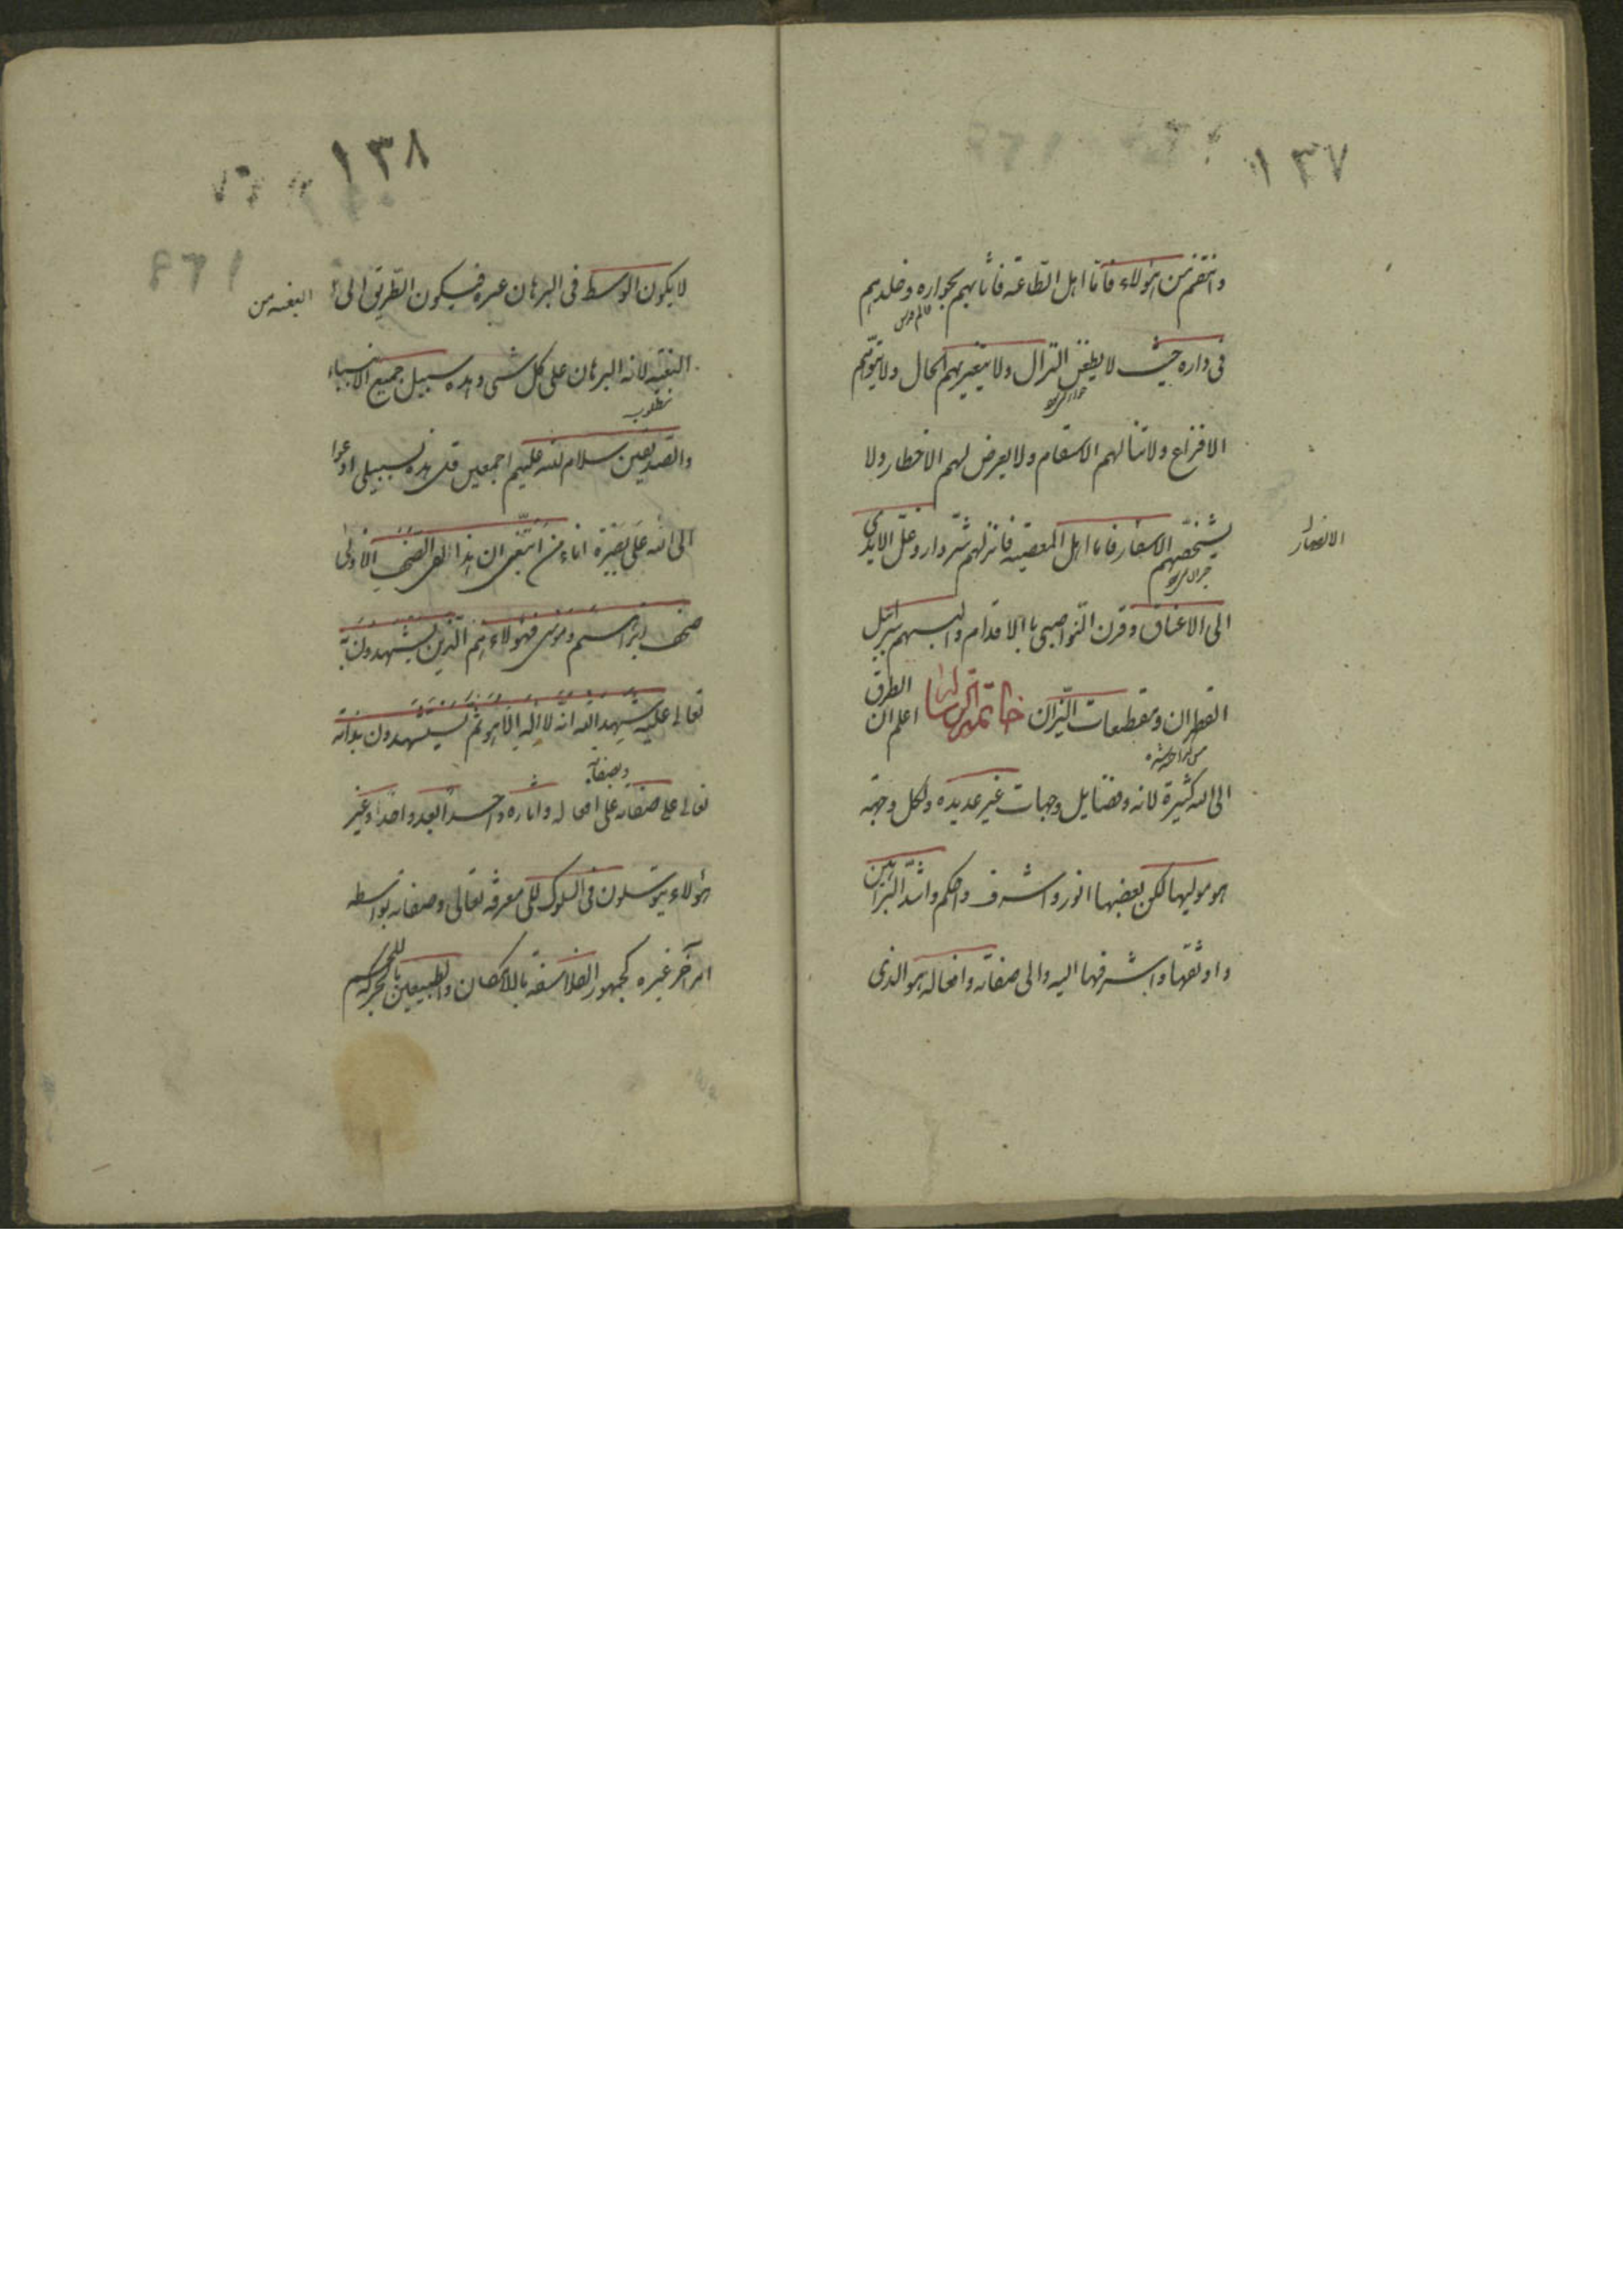 ١٣٧
وانتقم من هؤلاء فاما اهل الطاعة فاثابهم بجواره وخلدهم
فى داره حيث لا يظعن النزال ولا يتغير بهم الحال ولا تنوبهم
الافزاع ولا تنالهم الاسقام ولا يعرض لهم الاخطار ولا
يشخصهم الاسفار فاما اهل المعصية فانزلهم شر دار وغل الايدى
الى الاعناق وقرن النواصى بالاقدام والبسهم سرابيل
القطران ومقطعات النيران خاتمة اعلم ان الطرق
الى الله كثيرة لانه وفضايل وجهات غير عديده ولكل وجهة
هو موليها لكن بعضها انور واشرف واحكم واشد البراهين
واوثقها واشرفها اليه والى صفاته وافعاله هو الذى
١٣٨
لا يكون الوسط فى البرهان غيره فيكون الطريق الى
البغية من
البغية لانه البرهان على كل شى وهذه سبيل جميع الانبياء
والصديقين سلام الله عليهم اجمعين قل هذه سبيلى ادعوا
الى الله على بصيرة انا ومن اتبعنى ان هذا لفى الصحف الاولى
صحف ابراهيم وموسى فهؤلاء هم الذين يستشهدون به
تعالى عليه شهد الله انه لا اله الا هو ثم يستشهدون بذاته
وبصفاته
تعالى على صفاته على افعاله واثاره واحدا بعد واحد وغير
هؤلاء يتوسلون فى السلوك الى معرفته تعالى وصفاته بواسطه
امر آخر غيره كجمهور الفلاسفة بالامكان والطبيعين بالحركة